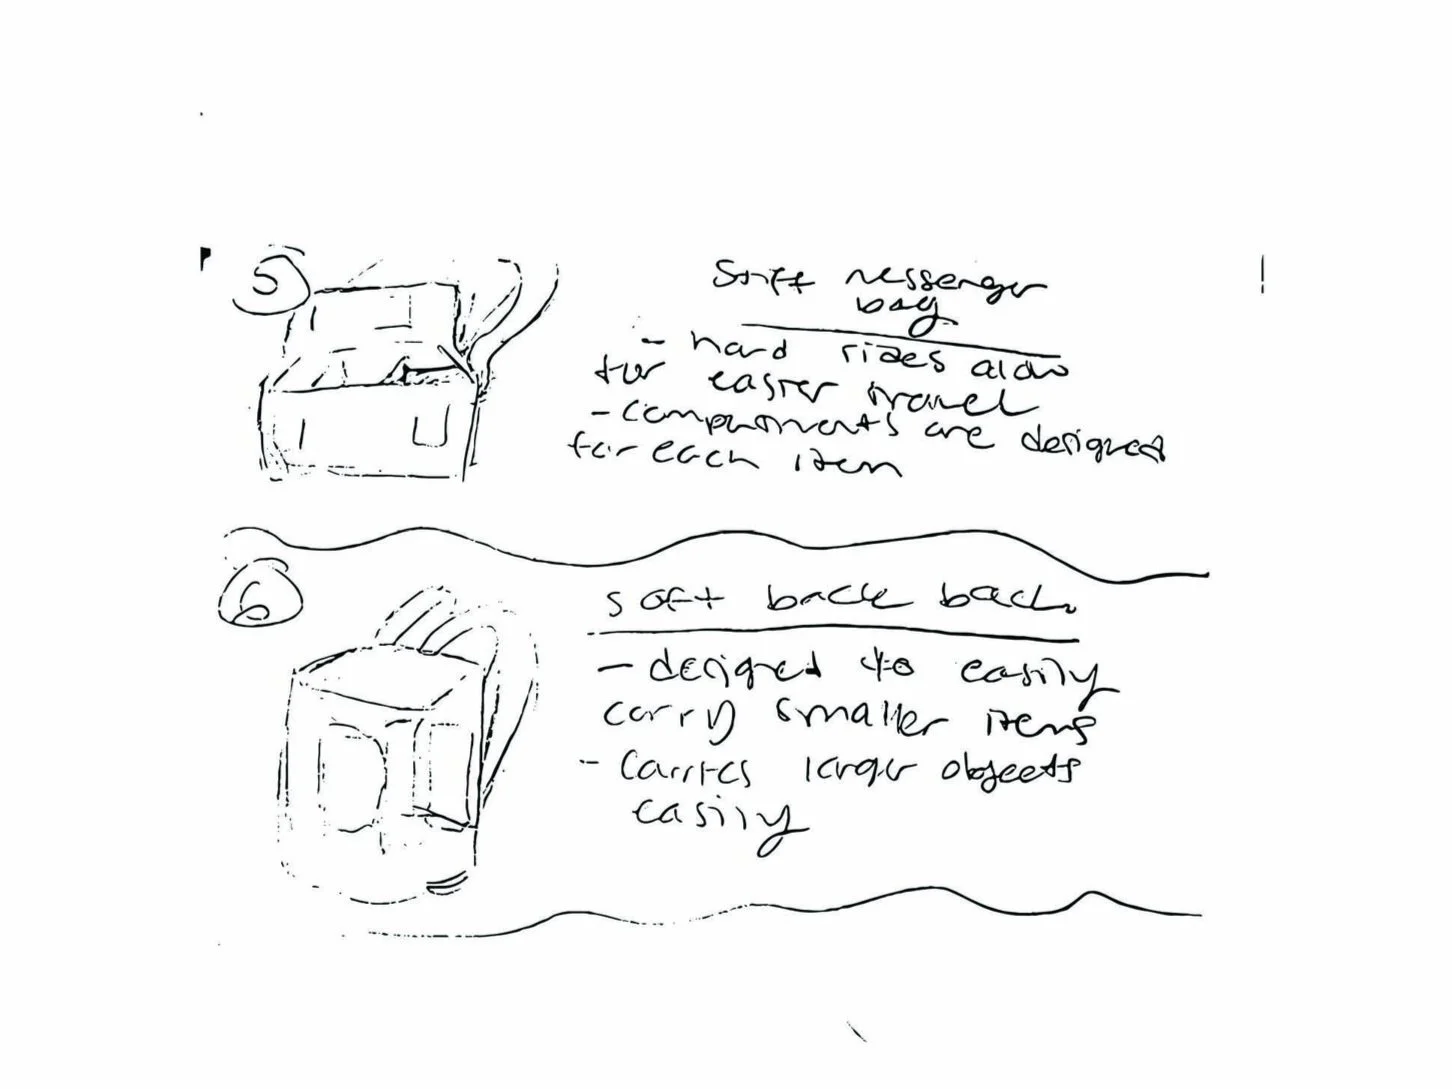 5
Stiff messenger
bag
- hard sides allow
for easier travel
- compartments are designed
for each item
6
soft back back
- designed to easily
carry smaller items
- Carries larger objects
easily